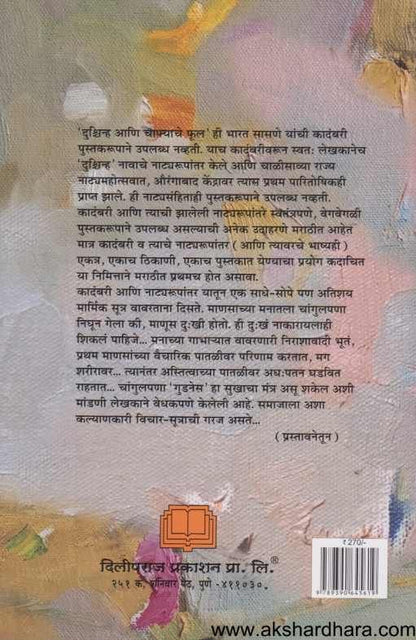 'दुश्चिन्ह आणि चाफ्याचे फूल' ही भारत सासणे यांची कादंबरी
पुस्तकरूपाने उपलब्ध नव्हती. याच कादंबरीवरून स्वतः लेखकानेच
'दुश्चिन्ह' नावाचे नाट्यरूपांतर केले आणि चाळीसाव्या राज्य
नाट्यमहोत्सवात, औरंगाबाद केंद्रावर त्यास प्रथम पारितोषिकही
प्राप्त झाले. ही नाट्यसंहिताही पुस्तकरूपाने उपलब्ध नव्हती.
कादंबरी आणि त्याची झालेली नाट्यरूपांतर स्वतंत्रपणे, वेगवेगळी
पुस्तकरूपाने उपलब्ध असल्याची अनेक उदाहरणे मराठीत आहेत
मात्र कादंबरी व त्याचे नाट्यरूपांतर (आणि त्यावरचे भाष्यही)
एकत्र, एकाच ठिकाणी, एकाच पुस्तकात येण्याचा प्रयोग कदाचित
या निमित्ताने मराठीत प्रथमच होत असावा.
कादंबरी आणि नाट्यरूपांतर यातून एक साधे-सोपे पण अतिशय
मार्मिक सूत्र वावरताना दिसते. माणसाच्या मनातला चांगुलपणा
निघून गेला की, माणूस दुःखी होतो. ही दुःखं नाकारायलाही
शिकलं पाहिजे... मनाच्या गाभाऱ्यात वावरणारी निराशावादी भूतं,
प्रथम माणसांच्या वैचारिक पातळीवर परिणाम करतात, मग
शरीरावर... त्यानंतर अस्तित्वाच्या पातळीवर अधःपतन घडवित
राहतात... चांगुलपणा 'गुडनेस' हा सुखाचा मंत्र असू शकेल अशी
मांडणी लेखकाने बेधकपणे केलेली आहे. समाजाला अशा
कल्याणकारी विचार-सूत्राची गरज असते...
(प्रस्तावनेतून)
दिलीपराज प्रकाशन प्रा. लि.®
२५१ क, शनिवार पेठ, पुणे - ४११०३०.
₹ 270/-
9789390645619
www.akshardhara.com